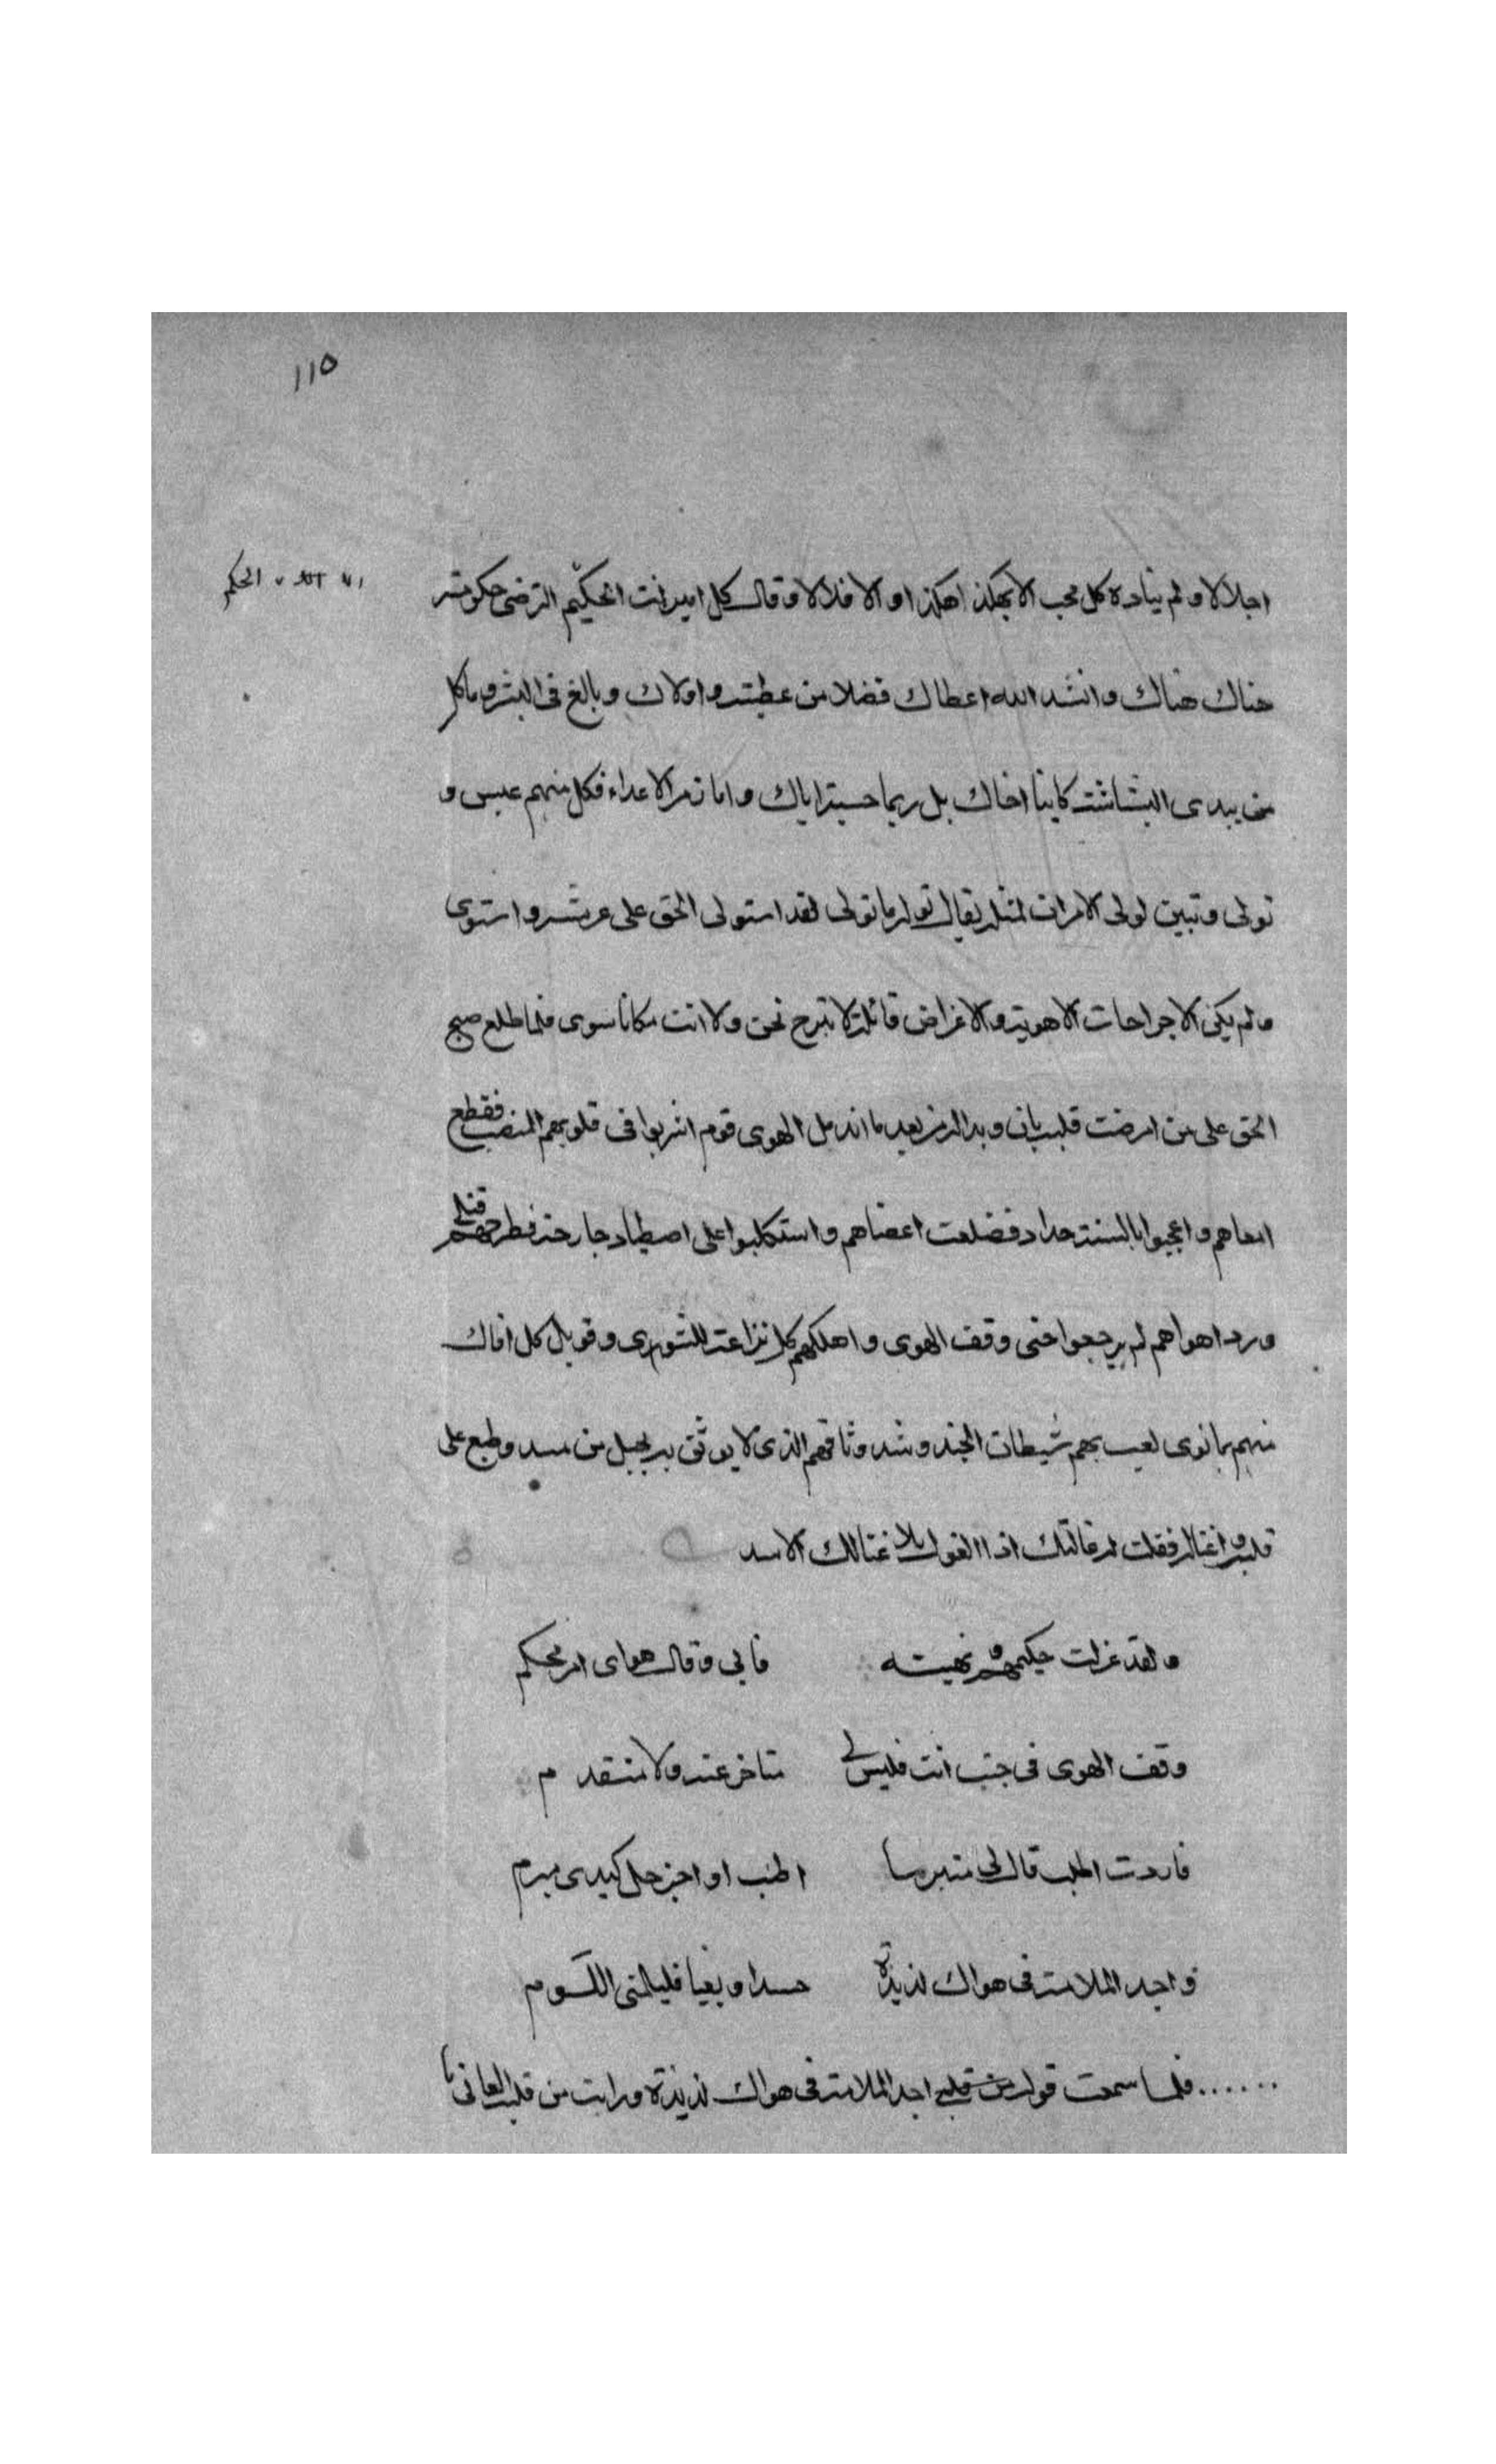 ١١٥
اجلالا ولم يناده كل محب الا بهكذا هكذا والا فلالا وقال كل امير انت الحكيم الترضى حكومته
الحكم
هناك هناك وانشد الله اعطاك فضلا من عطيته واولاك وبالغ فى البشر وما كل
من يبدى البشاشة كاينا اخاك بل ربما حسبته اياك واما زمر الاعداء فكل منهم عبس و
تولى وتبين لولى الامر ان لمثله يقال نوله ما تولى فقد استولى الحق على عرشه واستوى
ولم يكن الا جراحات الاهوية والاغراض قائلة لا نبرح نحن ولا انت مكانا سوى فلما طلع صبح
الحق على من امرضت قلبه بان وبدا الرمز بعد ما اندمل الهوى قوم اشربوا فى قلوبهم المنصب فقطع
امعاهم واعجبوا بالسنة حداد فضلعت اعضاهم واستكلبوا على اصطياد جارحة فطرحتهم قتلى
ورد اهواهم لم يرجعوا حتى وقف الهوى واهلكهم كل نزاعة للشوى وقوبل كل افاك
منهم بما نوى لعب بهم شيطان الجند وشد وثاقهم الذى لا يوثق به بحبل من مسد وطبع على
قلبه واغتاله فقلت له غالتك اذا الغول بلا غتالك الاسد
ولقد عزلت حكيمهم ونهيته فابى وقال هواى امر محكم
وقف الهوى فى حيث انت فليس لى متاخر عنه ولا متقدم
فاردت اطلبه قال لى متبرما اطنب او اجز حل كيدى مبرم
واجد الملامة فى هواك لذيذة حسدا وبغيا فليلمنى اللوم
...... فلما سمعت قوله من قلبى اجد الملامة فى هواك لذيذة ورايت من قلبه العانى ما